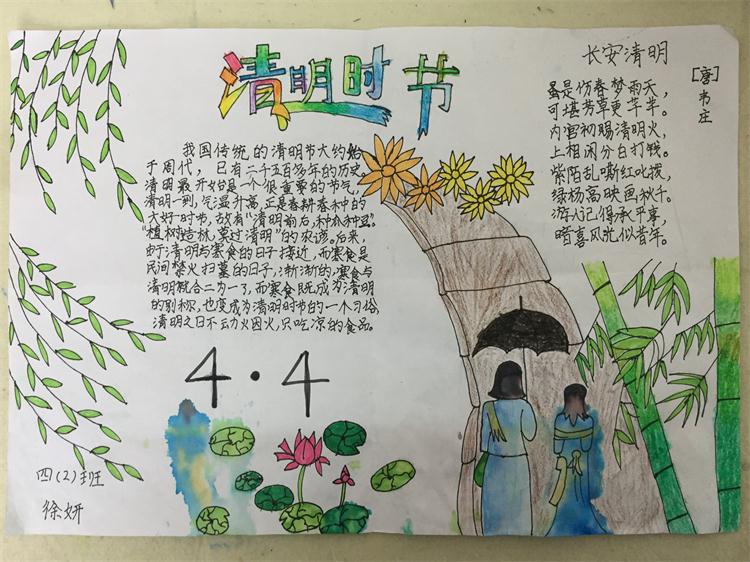 清明时节
我国传统的清明节大约始
于周代，已有二千五百多年的历史。
清明最开始是一个很重要的节气，
清明一到，气温升高，正是春耕春种的
大好时节，故有“清明前后，种瓜种豆。”
“植树造林，莫过清明”的农谚。后来，
由于清明与寒食的日子接近，而寒食是
民间禁火扫墓的日子，渐渐的，寒食与
清明就合二为一了，而寒食既成为清明
的别称，也变成为清明时节的一个习俗，
清明之日不动火因火，只吃凉的食品。
4·4
长安清明
[唐]韦庄
虽是伤春梦雨天，
可堪芳草更芊芊。
内官初赐清明火，
上相闲分白打钱。
紫陌乱嘶红叱拨，
绿杨高映画秋千。
游人记得承平事，
暗喜风光似昔年。
四(2)班
徐妍